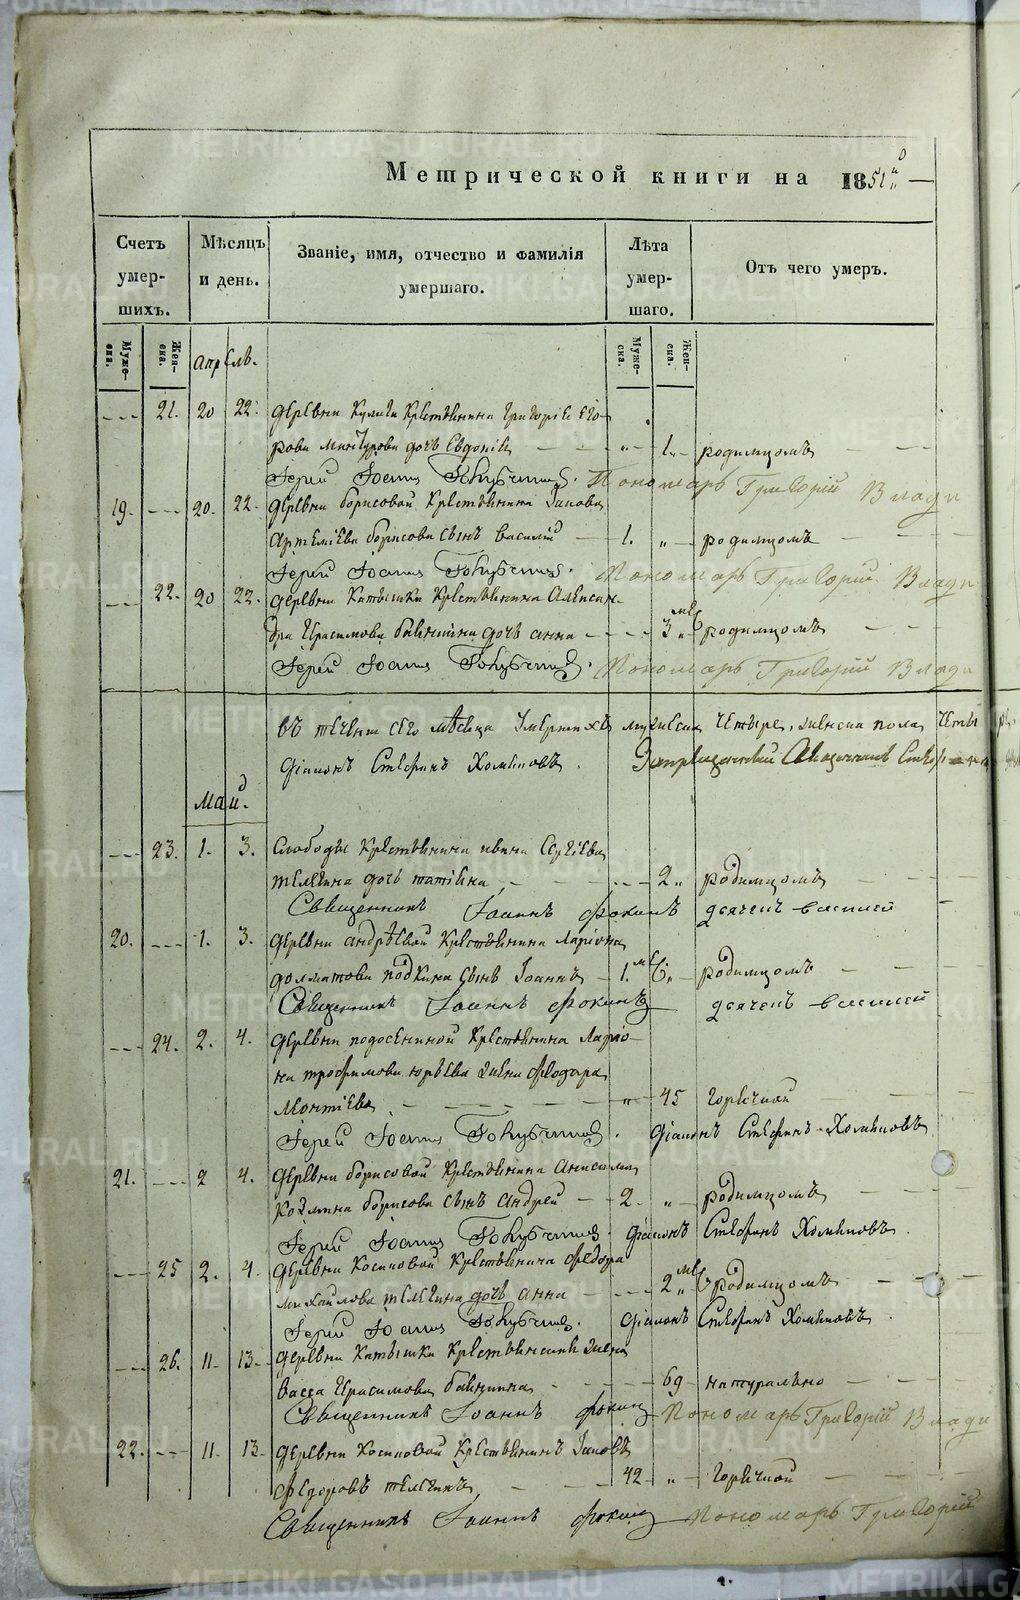 Метрической книги на 1851й
Счетъ умершихъ.
Мѣсяцъ и день.
Званіе, имя, отчество и фамилія умершаго.
Лѣта умершаго.
Отъ чего умеръ.
Мужеска.
Женска.
Мужеска.
Женска.
Апрѣль.
21. 20 22. Деревни Кулиги крестьянина Григорія Его-
рова дочь Евдокія 1. родимцомъ
Іерей Іоаннъ Пономарь Григорій Влади
19. 20. 22. Деревни Борисовой крестьянина Іакова
Артеміева Борисова сынъ Василій 1. „ родимцомъ
Іерей Іоаннъ Пономарь Григорій Влади
22. 20 22. Деревни Катышки крестьянина Алексан-
дра Герасимова дочь Анна 3 мѣ родимцомъ
Іерей Іоаннъ Пономарь Григорій Влади
въ теченіи сего мѣсяца умершихъ мужеска четыре, женска пола четы
Діаконъ Стефанъ Хомяковъ.
Май.
23. 1. 3. Слободы крестьянина Ивана Сергіева
Телегина дочь Татіана 2 „ родимцомъ
Священникъ Іоаннъ Фокинъ дьячекъ Василій
20. 1. 3. Деревни Андрѣевой крестьянина Ларіона
Долматова сынъ Іоаннъ 1. мѣ „ родимцомъ
Священникъ Іоаннъ Фокинъ дьячекъ Василій
24. 2. 4. Деревни крестьянина Ларіо-
на Трофимова Юрьева жена Феодора
Леонтіева „ 45 горячкой
Іерей Іоаннъ Діаконъ Стефанъ Хомяковъ
21. 2 4. Деревни Борисовой крестьянина
Козмина Борисова сынъ Андрей 2. „ родимцомъ
Іерей Іоаннъ Діаконъ Стефанъ Хомяковъ.
25 2. 4. Деревни Косиковой крестьянина Федора
Михайлова Телегина дочь Анна 2 мѣ родимцомъ
Іерей Іоаннъ Діаконъ Стефанъ Хомяковъ
26. 11. 13. Деревни Катышки жена
Васса Герасимова 69 натурально
Священникъ Іоаннъ Фокинъ Пономарь Григорій Влади
22. 11. 13. Деревни Косиковой крестьянинъ Іаковъ
Федоровъ Телегинъ 42 „ горячкой
Священникъ Іоаннъ Фокинъ Пономарь Григорій
METRIKI.GASO-URAL.RU